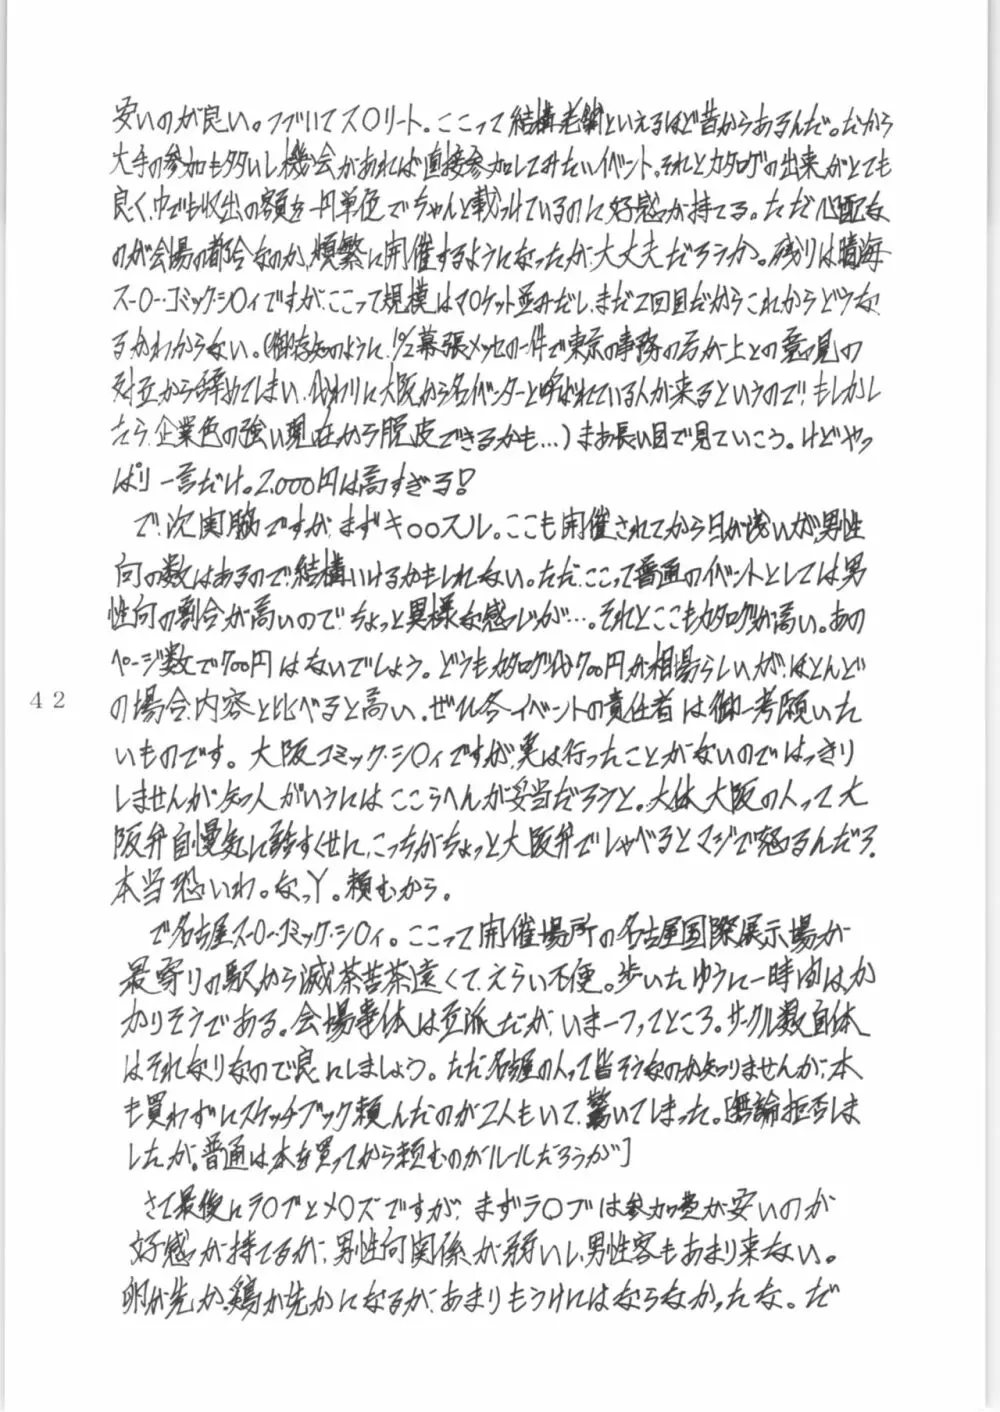 安いのが良い。つづいてス〇リート。ここって結構老舗といえるほど昔からあるんだ。だから
大手の参加も多いし機会があれば直接参加してみたいイベント。それとカタログの出来がとても
良く、中でも収出の額を一円単位でちゃんと載っけているのに好感が持てる。ただ心配な
のが会場の都合なのか、頻繁に開催するようになったが、大丈夫だろうか。残りは晴海
スー〇ー・コミック・シ〇ィですが、ここって規模はマ〇ケット並みだし、まだ2回目だからこれからどうな
るかわからない。(御存知のように、1%2幕張メッセの一件で東京の事務の方が上との意見の
対立から辞めてしまい、代わりに大阪から名イベンターと呼ばれている人が来るというので!もしかし
たら、企業色の強い現在から脱皮できるかも…)まあ長い目で見ていこう。けどやっ
ぱり一言だけ。2,000円は高すぎる!
で、次関脇ですが、まずキ〇〇スル。ここも開催されてから日が浅いが、男性
向の数はあるので、結構いけるかもしれない。ただ、ここって普通のイベントとしては男
性向の割合が高いので、ちょっと異様な感じが…。それとここもカタログが高い。あの
ページ数で700円はないでしょう。どうもカタログ代700円が相場らしいが、ほとんど
の場合、内容と比べると高い。ぜひ各イベントの責任者は御一考願いた
いものです。大阪コミック・シ〇ィですが、実は行ったことがないのではっきり
しませんが、知人がいうにはここらへんが妥当だろうと。大体大阪の人って大
阪弁自慢気に話すくせに、こっちがちょっと大阪弁でしゃべるとマジで怒るんだろ。
本当恐いわ。なっY。頼むから。
で名古屋スー〇ー・コミック・シ〇ィ。ここって開催場所の名古屋国際展示場が
最寄りの駅から滅茶苦茶遠くて、えらい不便。歩いたらゆうに一時間はか
かりそうである。会場事体は立派だが、いま一つってところ。サークル数自体
はそれなりなので良にしましょう。ただ名古屋の人って皆そうなのか知りませんが、本
も買わずにスケッチブック頼んだのが2人もいて、驚いてしまった。[無論拒否しま
したが。普通は本を買ってから頼むのがルールだろうが]
さて最後にラ〇ブとメ〇ズですが、まずラ〇ブは参加費が安いのが
好感が持てるが、男性向関係が弱いし、男性客もあまり来ない。
卵が先か、鶏が先かになるが、あまりもうけにはならなかったな。だ
42